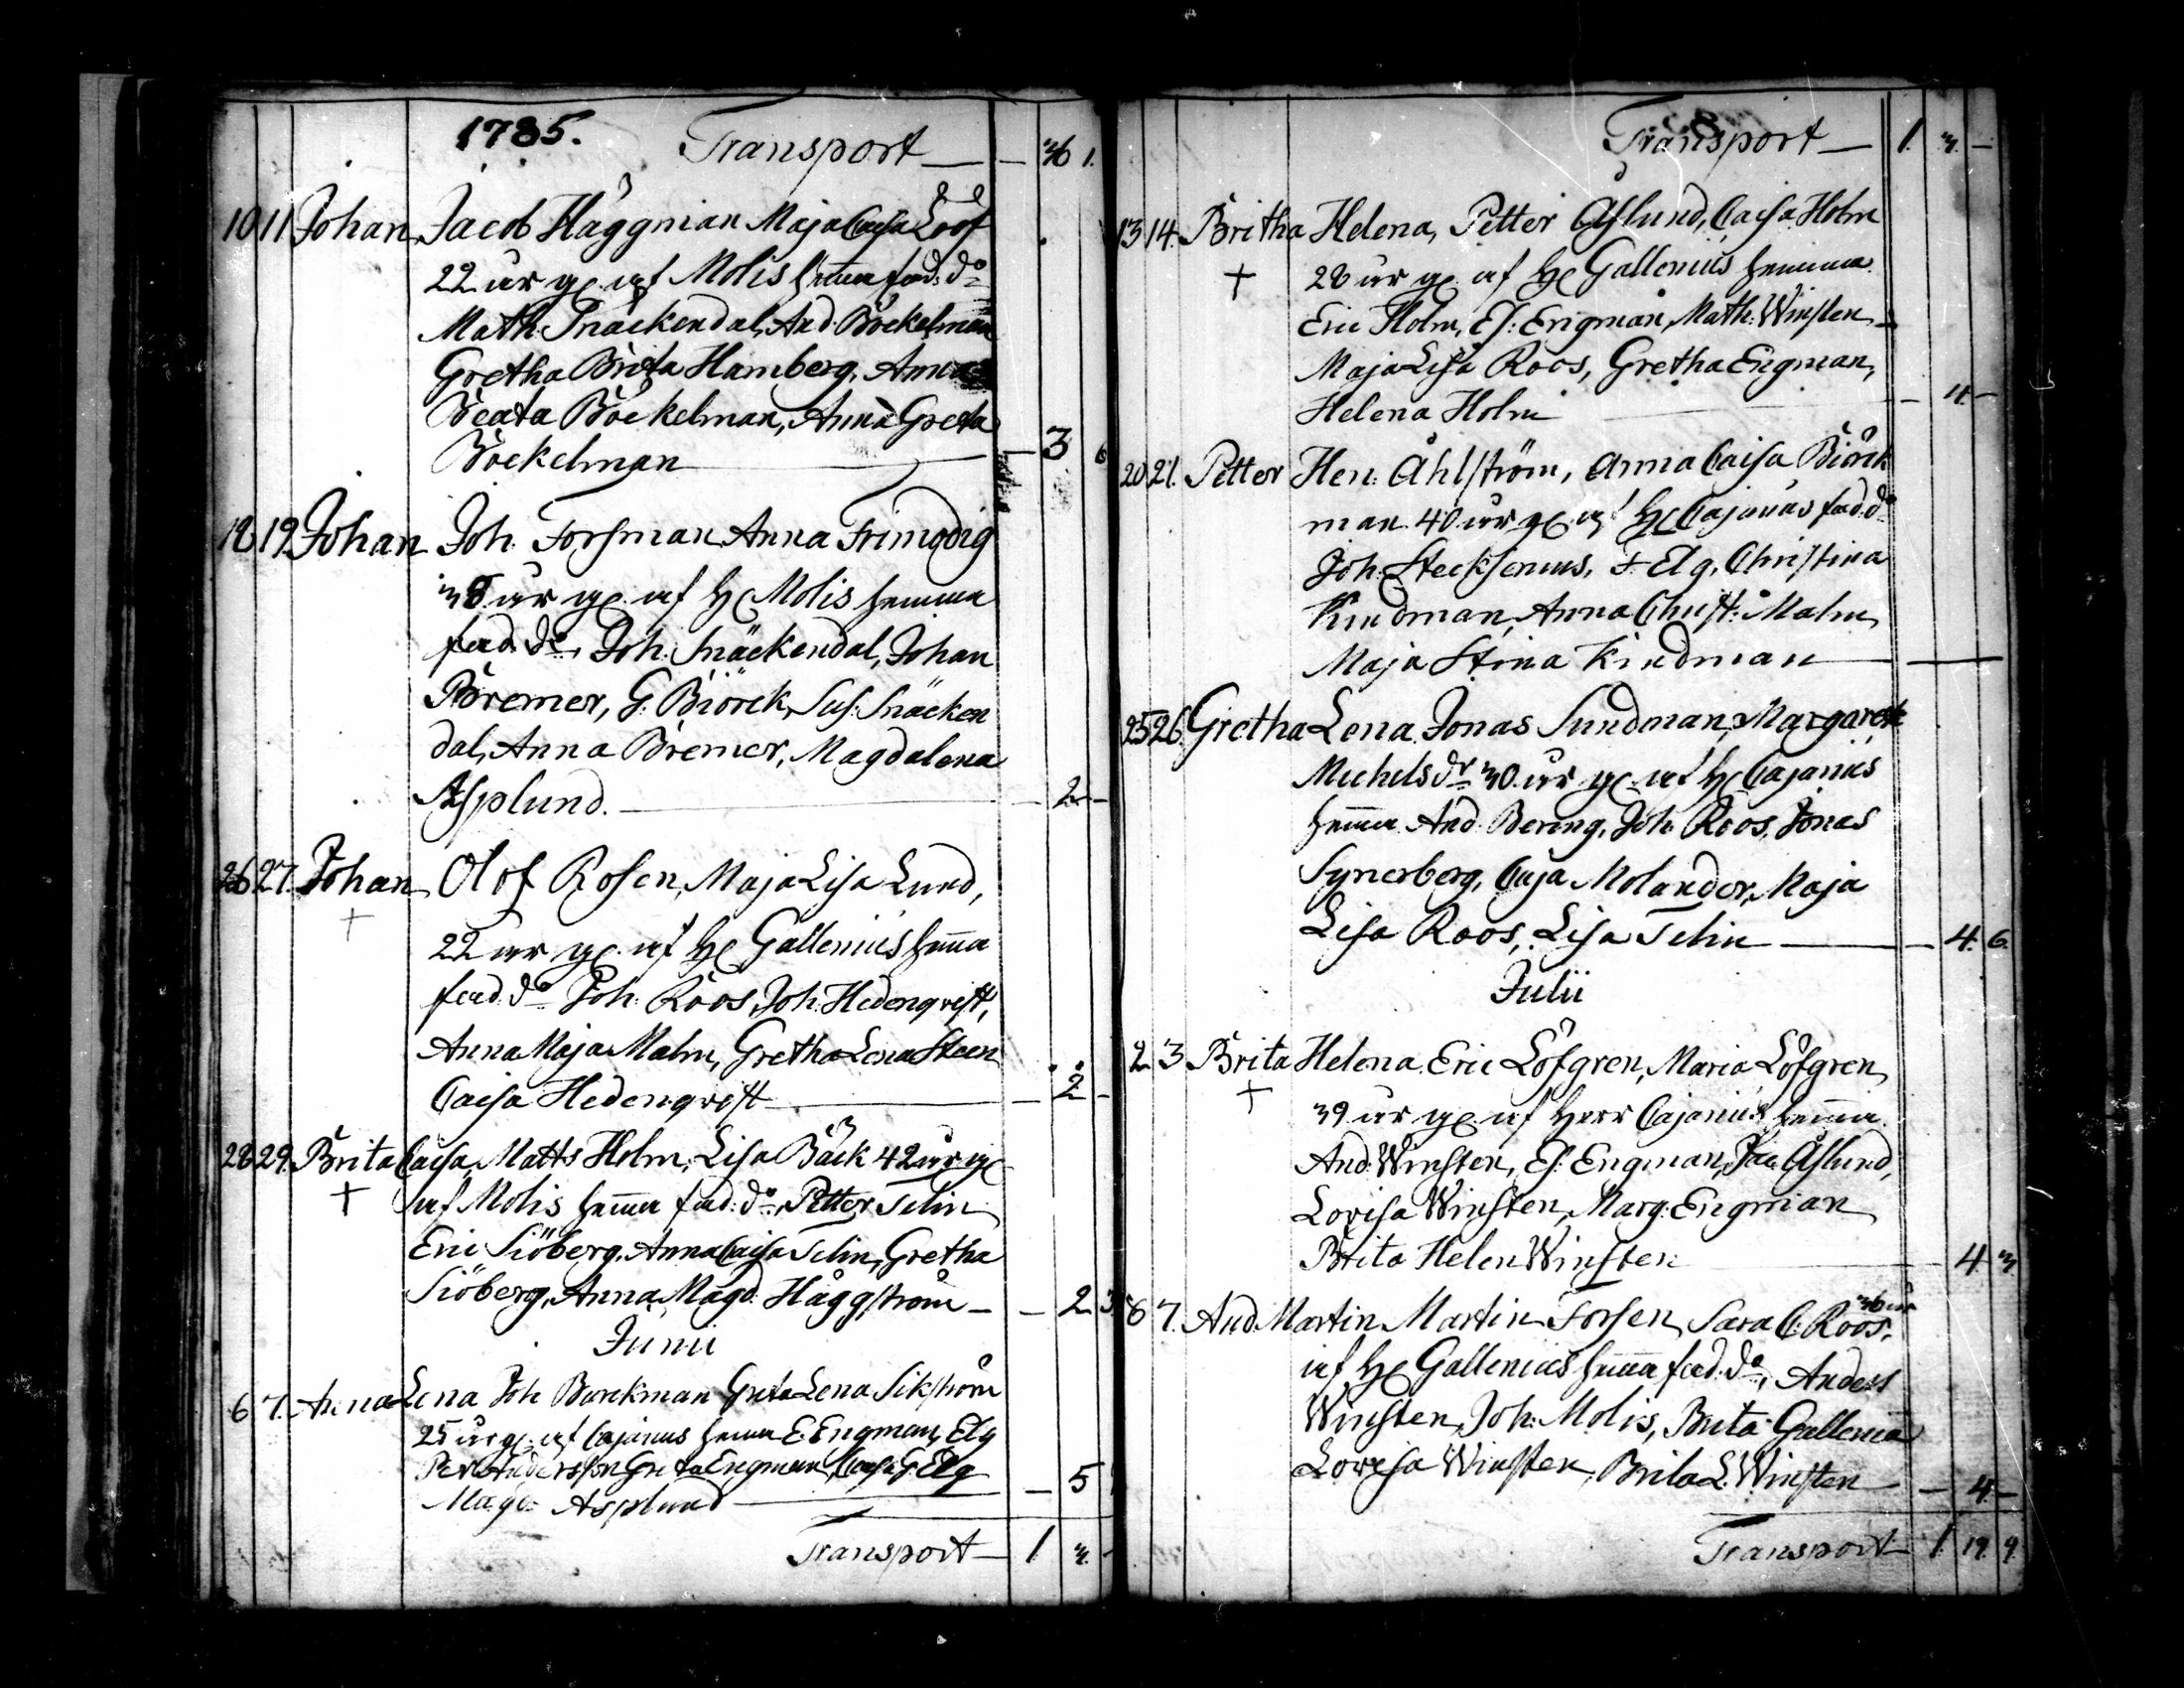 1785. Transport — — 36 1.
10 11 Johan Jacob Häggman Maja Caisa Lööf
22 år g. af Molis hemma fad. do
Math. Snäckendal, And. Böckelman
Gretha Brita Hamberg, Anna
Beata Böckelman, Anna Greta
Böckelman — 3 6
18 19 Johan Joh. Forsman Anna Frimodig
38 år g. af H. Molis hemma
fad. do, Joh. Snäckendal, Johan
Bremer, G. Biörck, Sus. Snäcken
dal, Anna Bremer, Magdalena
Asplund. — 2 —
26 27. Johan Olof Rosen, Maja Lisa Lund,
† 22 år g. af H. Gallenius hemma
fad. do Joh. Roos, Joh. Hedenqvist,
Anna Maja Malm, Gretha Lena Steen
Caisa Hedenqvist — 2 —
28 29. Brita Caisa, Matts Holm, Lisa Bäck 42 år g.
† af Molis hemma fad. do, Petter Telin
Eric Siöberg, Anna Caisa Telin, Gretha
Siöberg, Anna Magd. Häggström — — 2 3
Junii
6 7. Anna Lena Joh Burckman Greta Lena Sikström
25 år g. af Cajanus hemma E. Engman, Elg
Per Andersson Greta Engman, Caisa G. Elg
Magd. Asplund — 5
Transport — 1 3. —
Transport — 1. 3. —
13 14. Britha Helena, Petter Åslund, Caisa Holm
† 28 år g. af H. Gallenius hemma
Eric Holm, Es: Engman, Math: Winsten
Maja Lisa Roos, Gretha Engman,
Helena Holm — 4 —
20 21. Petter Hen: Åhlström, Anna Caisa Biörck
man 40 år g. af H. Cajanus fad. do
Joh. Stecksenius, F. Elg, Christina
Kindman, Anna Christ: Malm,
Maja Stina Kindman —
25 26 Gretha Lena Jonas Sundman, Margaret
Michelsdr 30 år g. af H. Cajanus
hemma And. Bering, Joh. Roos, Jonas
Synerberg, Caja Molander, Maja
Lisa Roos, Lisa Telin — 4. 6.
Julii
2 3 Brita Helena. Eric Löfgren, Maria Löfgren
† 39 år g. af Herr Cajanus hemma
And: Winsten, Es: Engman, Jac. Åslund,
Lovisa Winsten, Marg: Engman
Brita Helen Winsten 4. 3
6 7. And. Martin Martin Forsen, Sara C. Roos, 36 år
af H. Gallenius hemma fad. do, Anders
Winsten, Joh: Molis, Brita Gallenia
Lovisa Winsten, Brita L. Winsten — 4 —
Transport — 1. 19. 9.